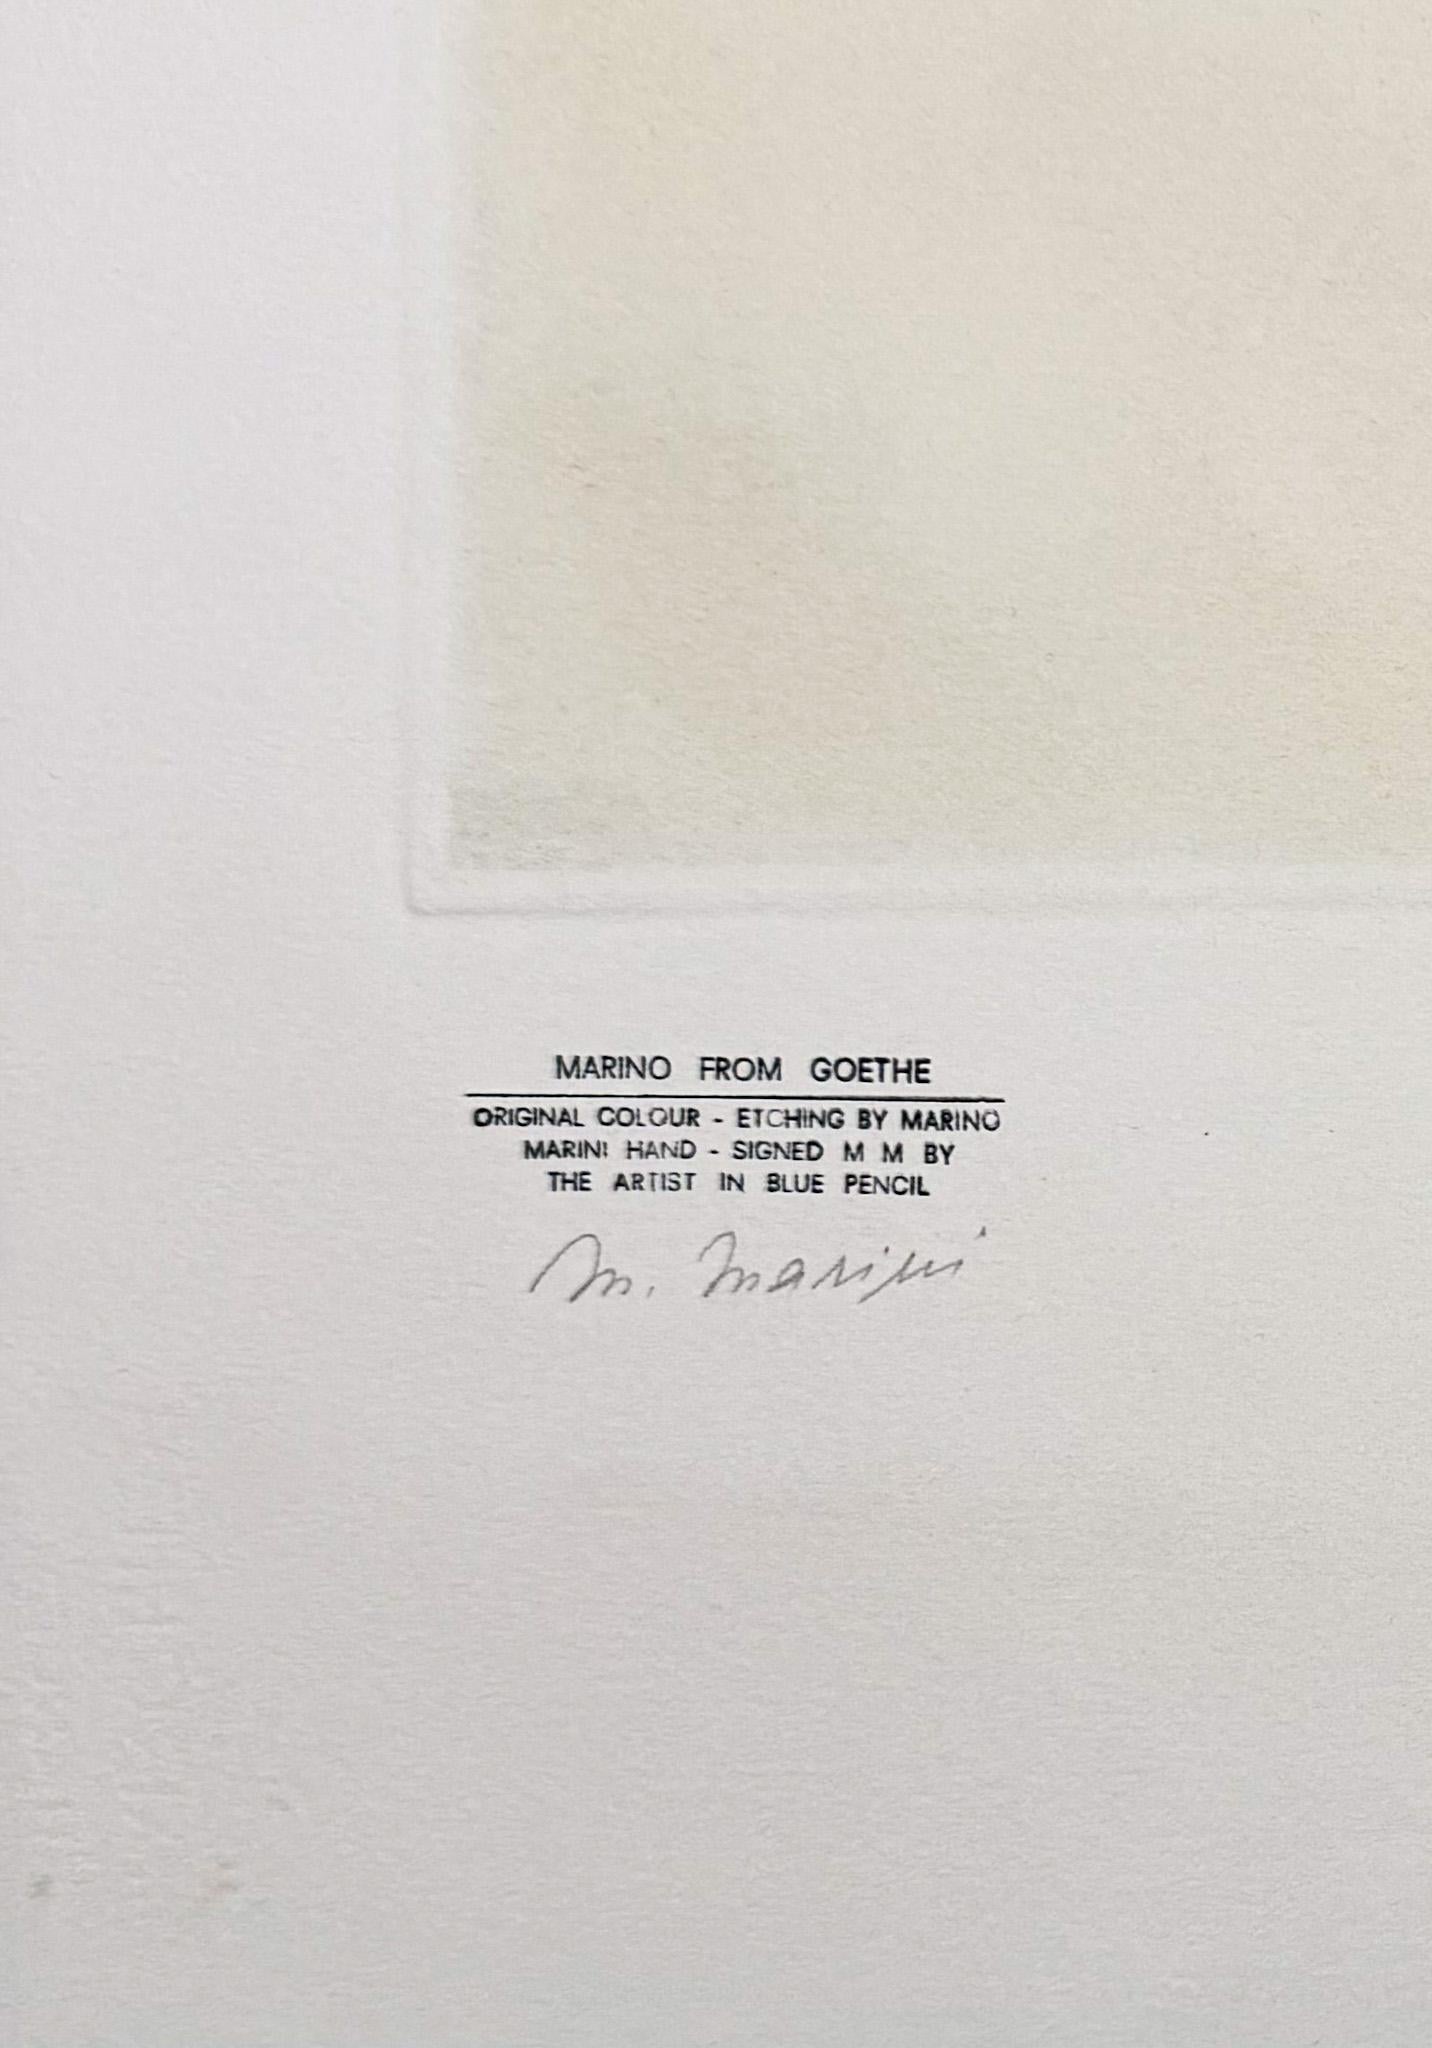 MARINO FROM GOETHE
ORIGINAL COLOUR - ETCHING BY MARINO
MARINI HAND - SIGNED M M BY
THE ARTIST IN BLUE PENCIL
M. Marini